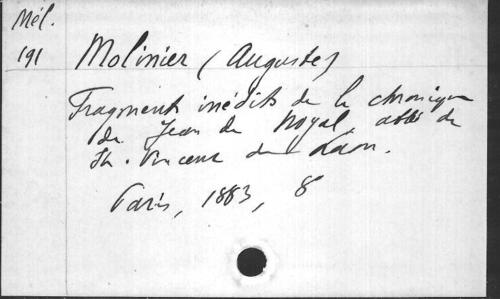 Mél.
191
Molinier (Auguste)
Fragments inédits de la chronique
de Jean de Noyal, abbé de
St. Vincent de Laon.
Paris, 1883, 8°